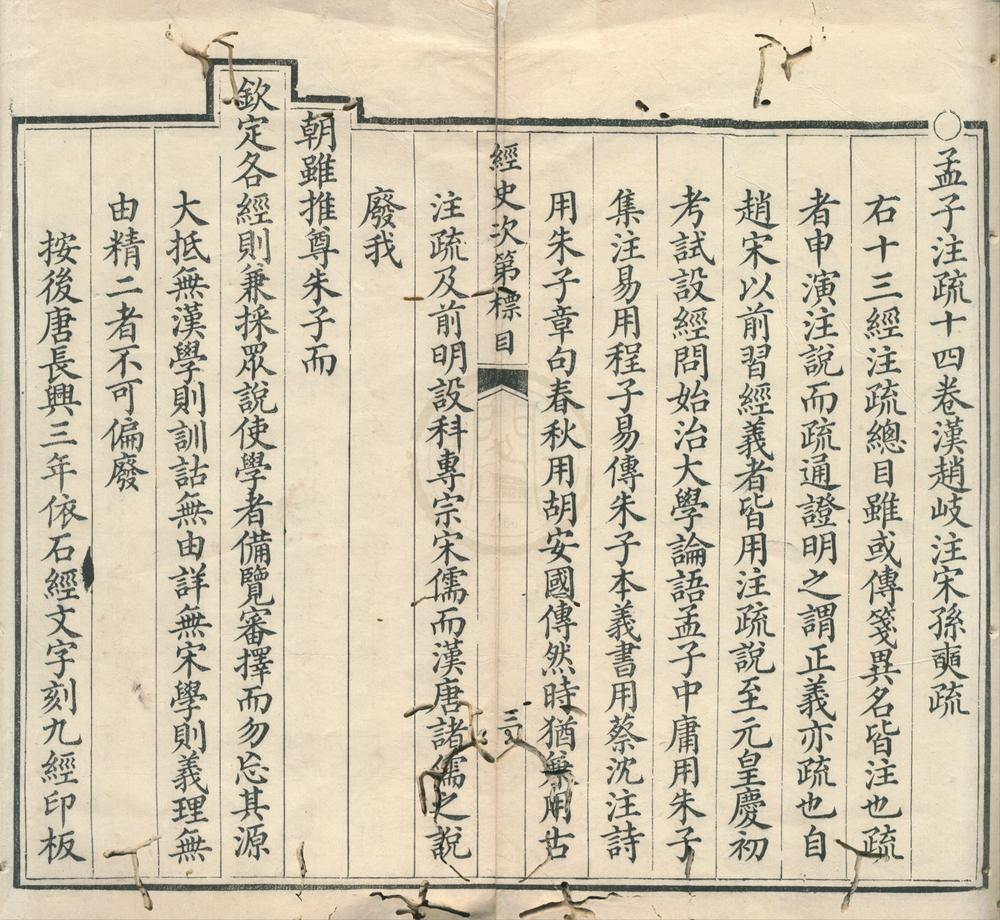 ○孟子注疏十四卷漢趙岐注宋孫奭疏
右十三經注疏總目雖或傳箋異名皆注也疏
者申演注說而疏通證明之謂正義亦疏也自
趙宋以前習經義者皆用注疏說至元皇慶初
考試設經問始治大學論語孟子中庸用朱子
集注易用程子易傳朱子本義書用蔡沈注詩
用朱子章句春秋用胡安國傳然時猶兼用古
經史次第標目
三
注疏及前明設科專宗宋儒而漢唐諸儒之說
廢我
朝雖推尊朱子而
欽定各經則兼採眾說使學者備覽審擇而勿忘其源
大抵無漢學則訓詁無由詳無宋學則義理無
由精二者不可偏廢
按後唐長興三年依石經文字刻九經印板